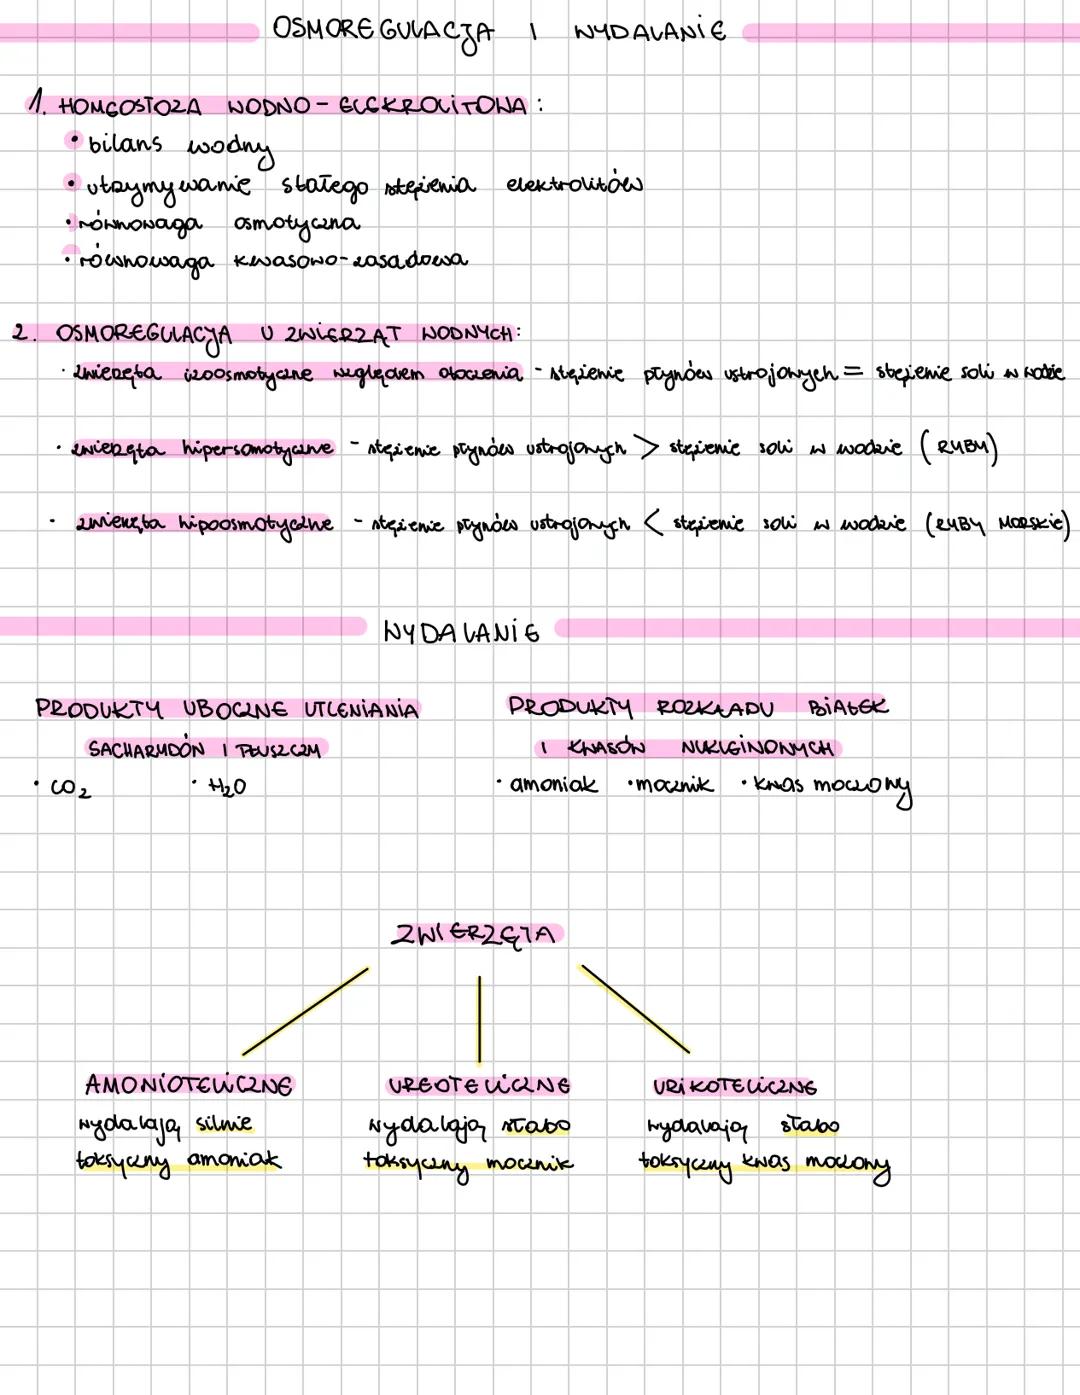 OSMOREGULACJA I WYDALANIE
1. HOMEOSTOZA WODNO-ELEKROLITOWA:
• bilans wodny
• utrzymywanie stałego stężenia elektrolitów
• równowaga osmotyczna
• równowaga kwasowo-zasadowa
2. OSMOREGULACJA U ZWIERZĄT WODNYCH:
• zwierzęta izoosmotyczne względem otoczenia - stężenie płynów ustrojowych = stężenie soli w wodzie
• zwierzęta hipersomotyczne - stężenie płynów ustrojowych > stężenie soli w wodzie (RYBY)
• zwierzęta hipoosmotyczne - stężenie płynów ustrojowych < stężenie soli w wodzie (RYBY MORSKIE)
WYDALANIE
PRODUKTY UBOCZNE UTLENIANIA
SACHARYDÓW I TŁUSZCZM
• CO2 • H2O
PRODUKTY ROZKŁADU BIAŁEK
I KWASÓW NUKLEINOWYCH
• amoniak • mocznik • kwas moczowy
ZWIERZĘTA
AMONIOTELICZNE
wydalają silnie
toksyczny amoniak
UREOTELICZNE
wydalają słabo
toksyczny mocznik
URIKOTELICZNE
wydalają słabo
toksyczny kwas moczowy